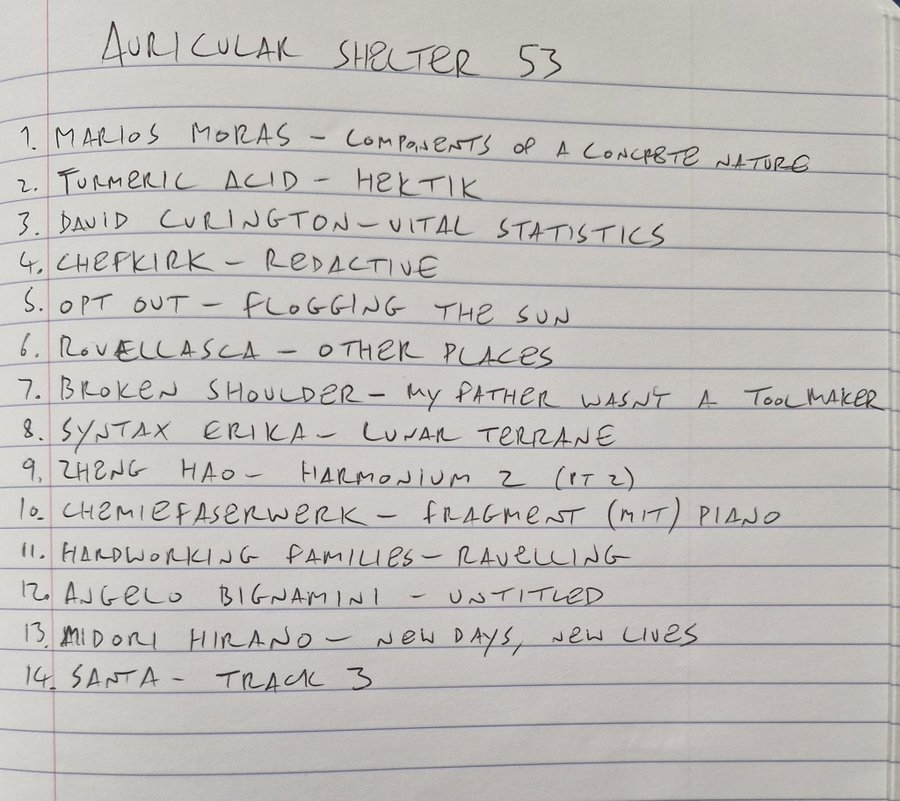 AURICULAR SHELTER 53
1. MARIOS MORAS - COMPONENTS OF A CONCRETE NATURE
2. TURMERIC ACID - HEKTIK
3. DAVID CURINGTON - VITAL STATISTICS
4. CHEFKIRK - REDACTIVE
5. OPT OUT - FLOGGING THE SUN
6. ROVELLASCA - OTHER PLACES
7. BROKEN SHOULDER - MY FATHER WASN'T A TOOLMAKER
8. SYNTAX ERIKA - LUNAR TERRANE
9. ZHENG HAO - HARMONIUM 2 (PT 2)
10. CHEMIEFASERWERK - FRAGMENT (MIT) PIANO
11. HARDWORKING FAMILIES - RAVELLING
12. ANGELO BIGNAMINI - UNTITLED
13. MIDORI HIRANO - NEW DAYS, NEW LIVES
14. SANTA - TRACK 3